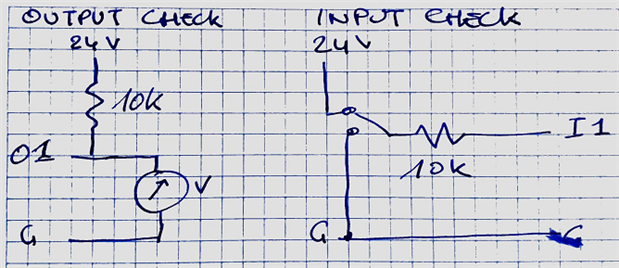 OUTPUT CHECK
24V
10K
O1
V
G
INPUT CHECK
24V
I1
10K
G
G